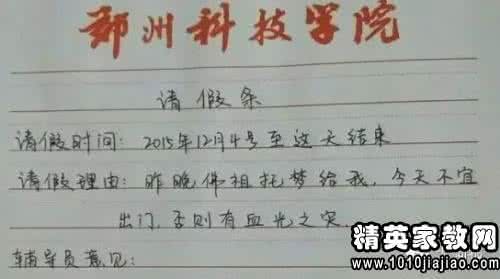 郑州科技学院
请假条
请假时间：2015年12月4号至这天结束
请假理由：昨晚佛祖托梦给我，今天不宜
出门，否则有血光之灾.
辅导员意见：
精英家教网
www.1010jiajiao.com